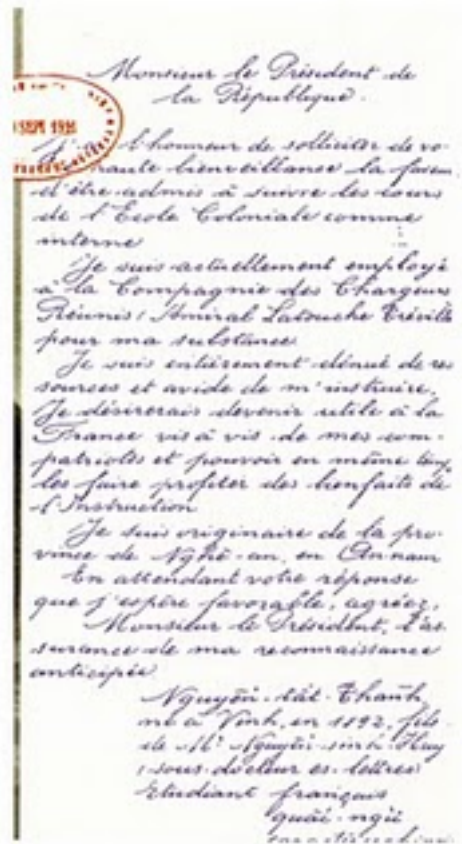 Monsieur le Président de
la République.
SEPT 1911
J'ai l'honneur de solliciter de vo-
haute bienveillance la faveur
d'être admis à suivre les cours
de l'École Coloniale comme
interne
Je suis actuellement employé
à la Compagnie des Chargeurs
Réunis, Amiral Latouche Tréville
pour ma substance
Je suis entièrement dénué de res
sources et avide de m'instruire.
Je désirerais devenir utile à la
France vis à vis de mes com-
patriotes et pouvoir en même temps
les faire profiter des bienfaits de
l'Instruction
Je suis originaire de la pro-
vince de Nghê-an, en Annam
En attendant votre réponse
que j'espère favorable, agréez,
Monsieur le Président, l'as
surance de ma reconnaissance
anticipée
Nguyên tât Thành,
né à Vinh, en 1892, fils
de Mr Nguyên sinh Huy
sous-docteur es-lettres
Étudiant français
quâi-ngu